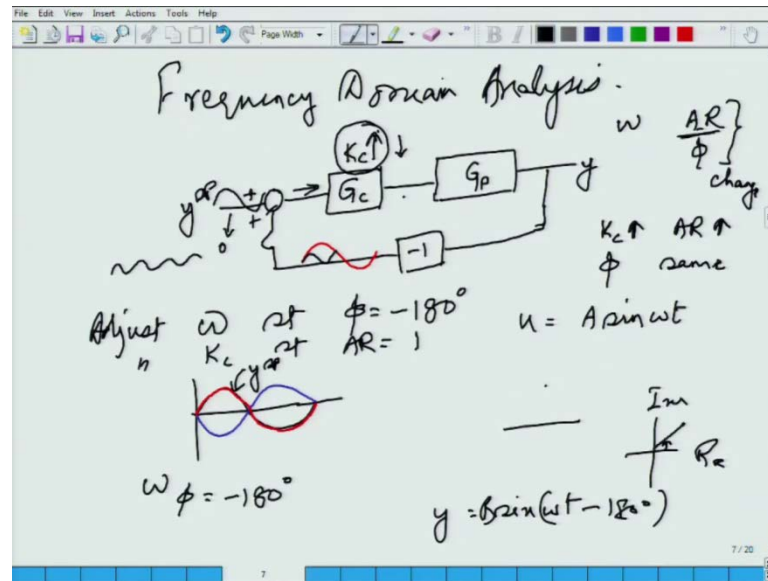 File Edit View Insert Actions Tools Help
Page Width
B I
Frequency Domain Analysis.
ω AR
ϕ
change
Kc↑ ↓
ysp + Gc Gp y
+
0
-1
Kc↑ AR↑
ϕ same
Adjust ω st ϕ = -180°
" Kc st AR = 1
u = A sin ωt
ysp
Im
Re
ω ϕ = -180°
y = B sin(ωt - 180°)
7 / 20
7